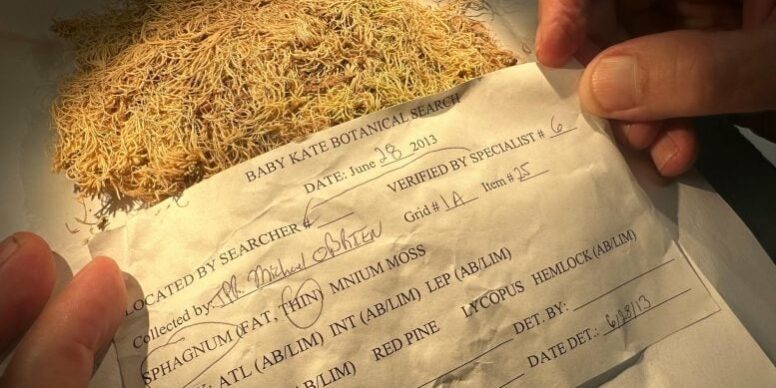 BABY KATE BOTANICAL SEARCH
DATE: June 28 2013
LOCATED BY SEARCHER # VERIFIED BY SPECIALIST # 6
Collected by: TPR. Michael O'BRIEN Grid # 1A Item # 25
SPHAGNUM (FAT, THIN) MNIUM MOSS
: ATL (AB/LIM) INT (AB/LIM) LEP (AB/LIM)
B/LIM) RED PINE LYCOPUS HEMLOCK (AB/LIM)
DET. BY:
DATE DET.: 6/28/13